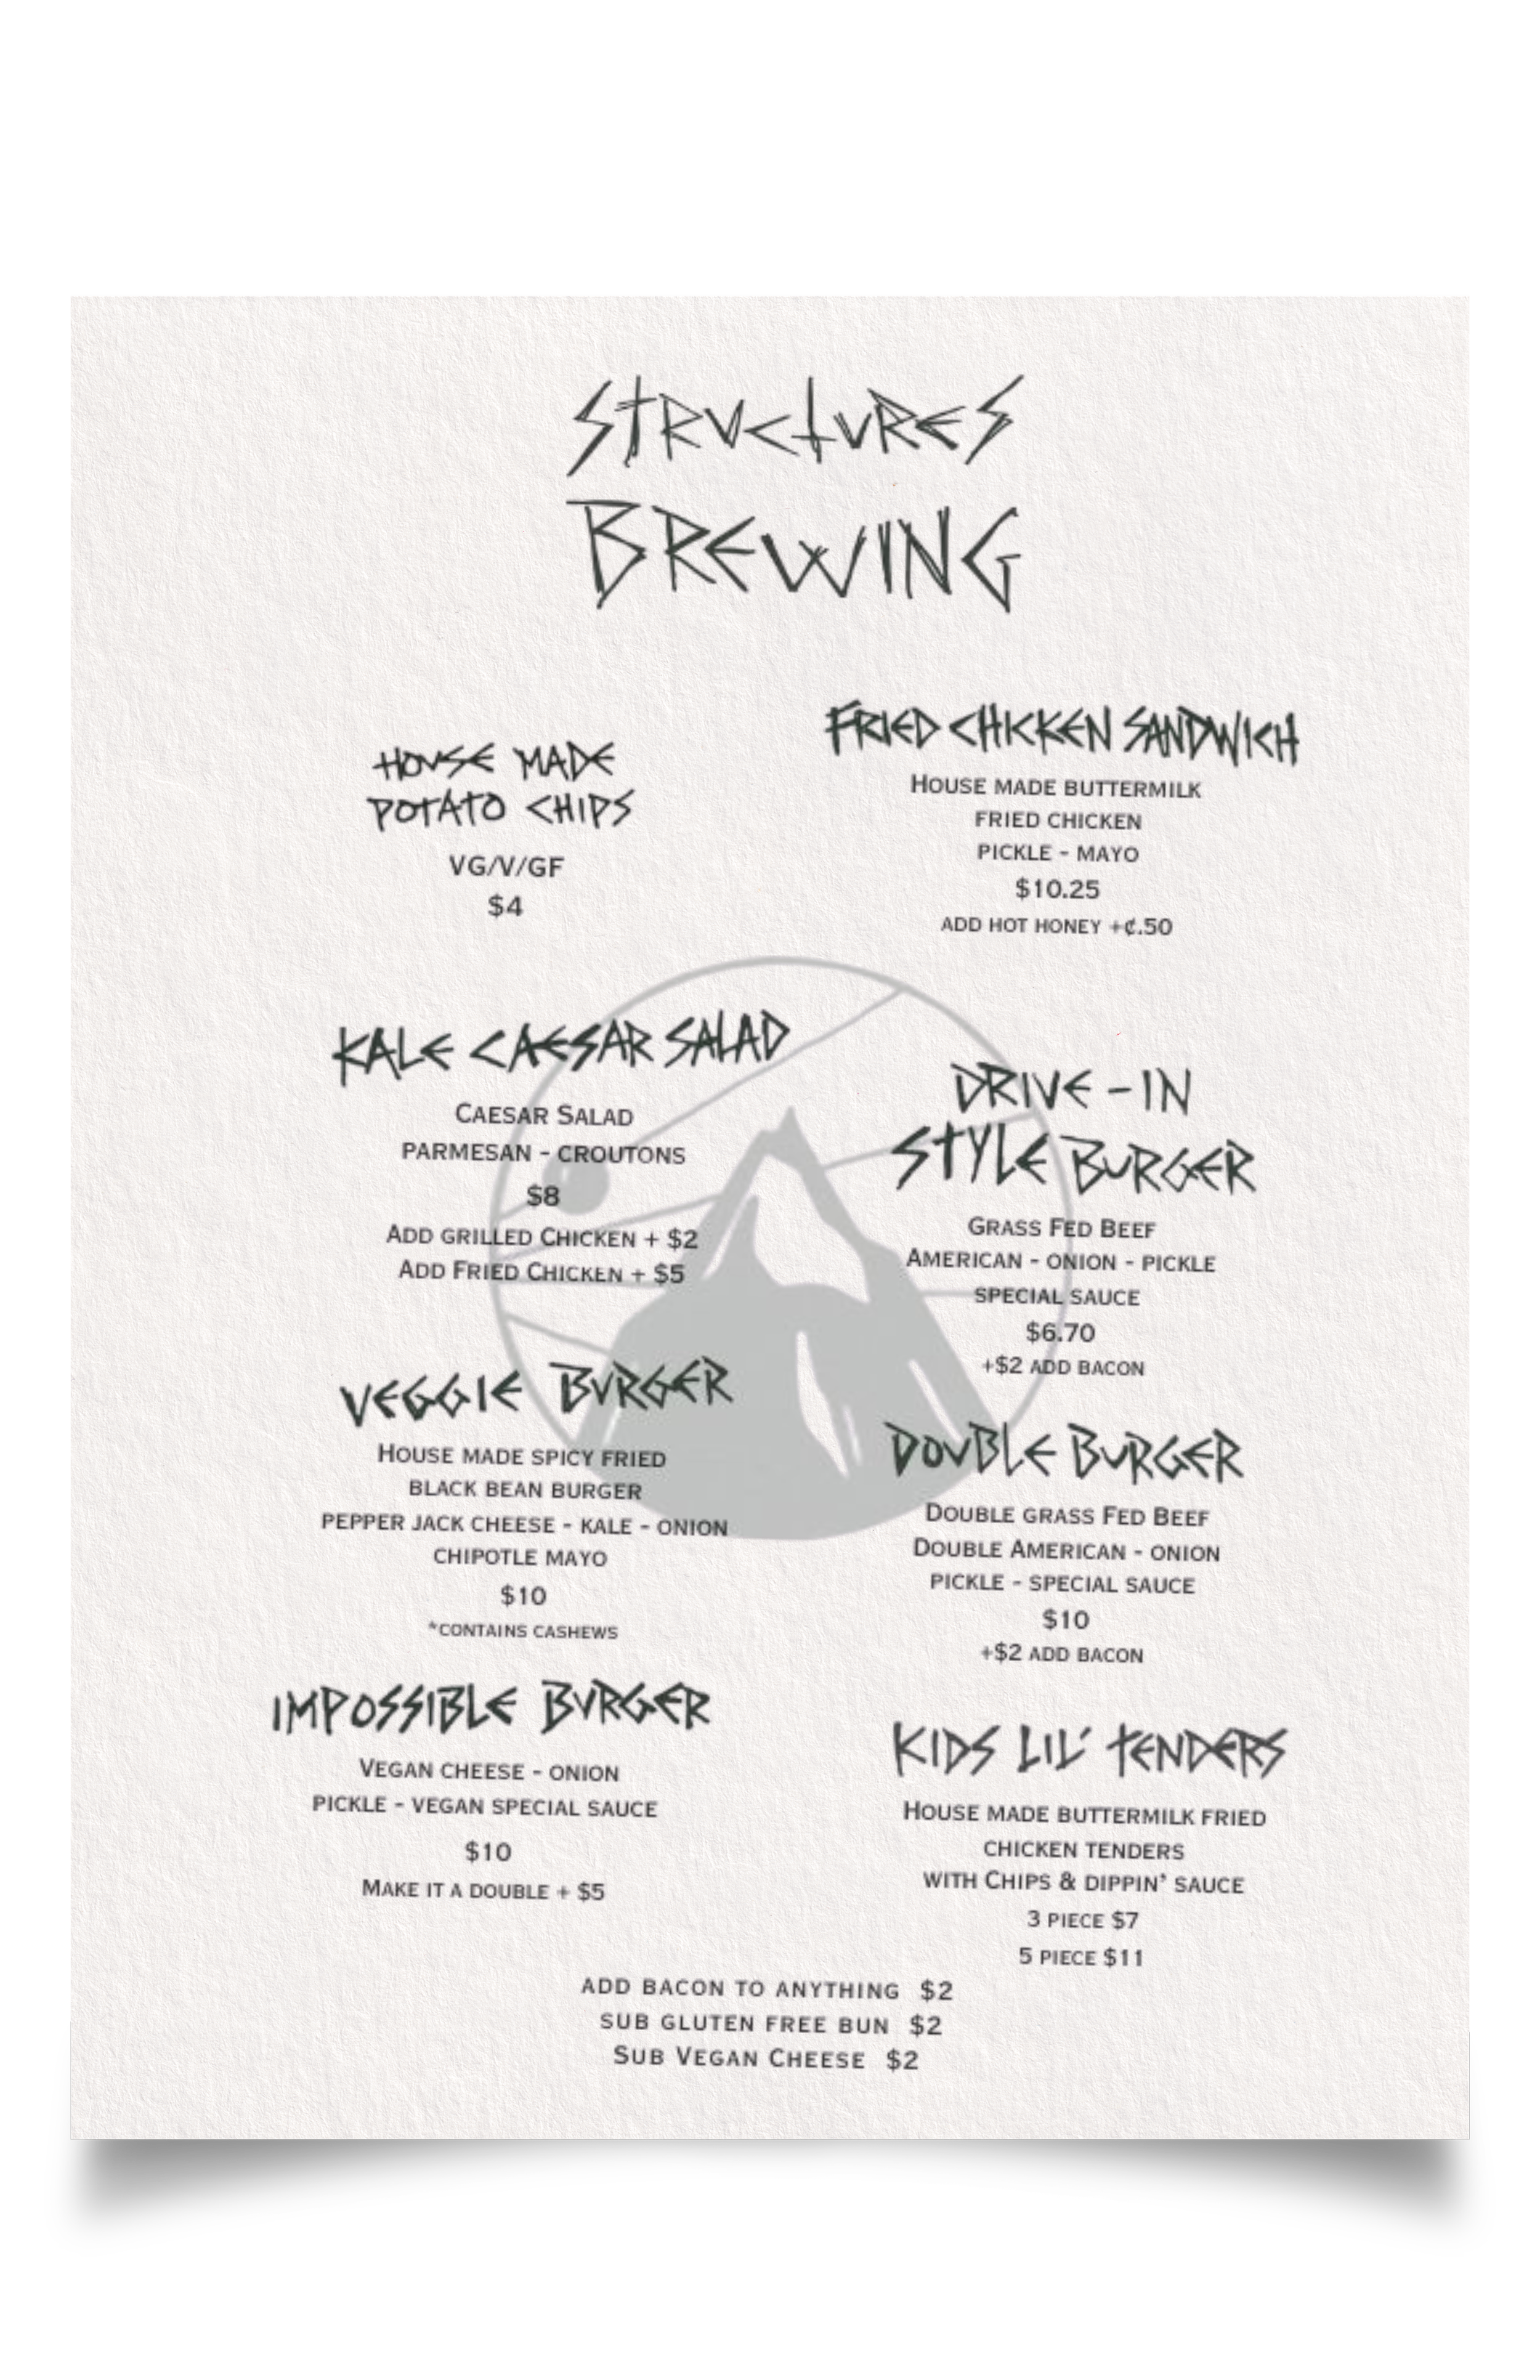 Structures
Brewing
House Made
Potato Chips
VG/V/GF
$4
Kale Caesar Salad
Caesar Salad
parmesan - croutons
$8
Add grilled Chicken + $2
Add Fried Chicken + $5
Veggie Burger
House made spicy fried
black bean burger
pepper jack cheese - kale - onion
chipotle mayo
$10
*contains cashews
Impossible Burger
Vegan cheese - onion
pickle - vegan special sauce
$10
Make it a double + $5
Fried Chicken Sandwich
House made buttermilk
fried chicken
pickle - mayo
$10.25
add hot honey +¢.50
Drive-In
Style Burger
Grass Fed Beef
American - onion - pickle
special sauce
$6.70
+$2 add bacon
Double Burger
Double grass Fed Beef
Double American - onion
pickle - special sauce
$10
+$2 add bacon
Kids Lil' Tenders
House made buttermilk fried
chicken tenders
with Chips & dippin' sauce
3 piece $7
5 piece $11
add bacon to anything $2
sub gluten free bun $2
Sub Vegan Cheese $2